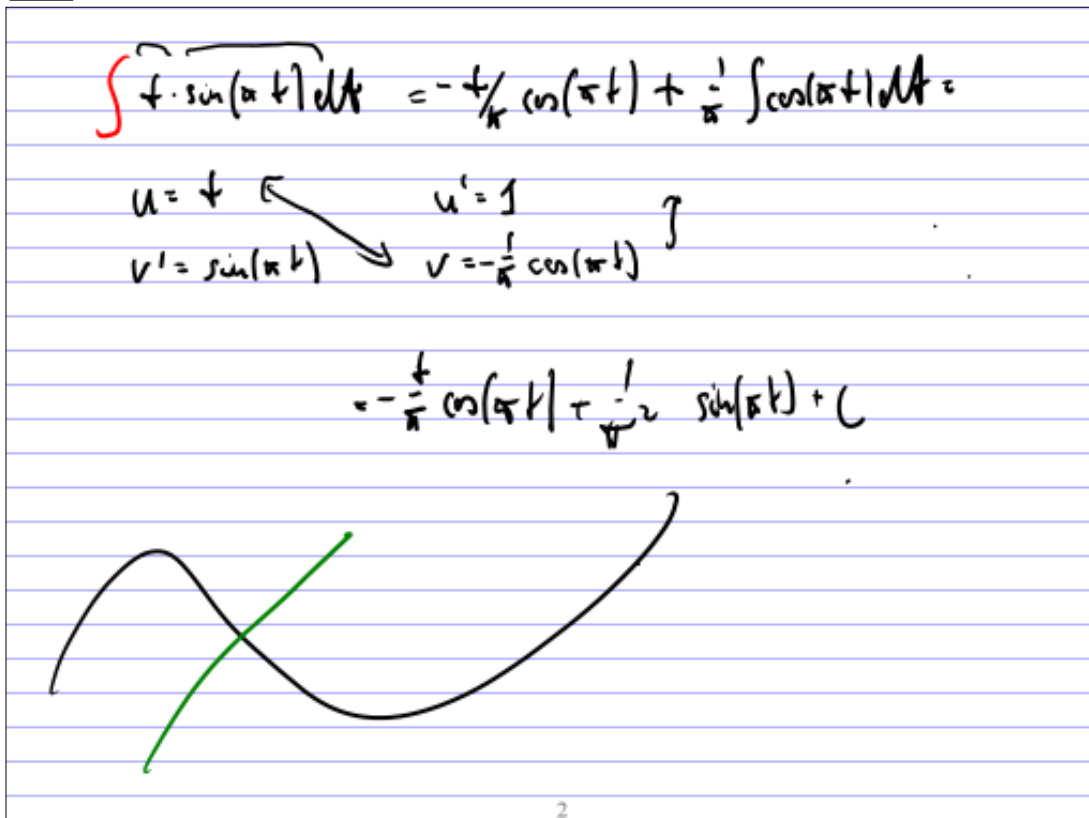 ∫ t · sin(πt) dt = -t/π cos(πt) + 1/π ∫cos(πt) dt =
u = t u' = 1
v' = sin(πt) v = -1/π cos(πt)
= -t/π cos(πt) + 1/π² sin(πt) + C
2